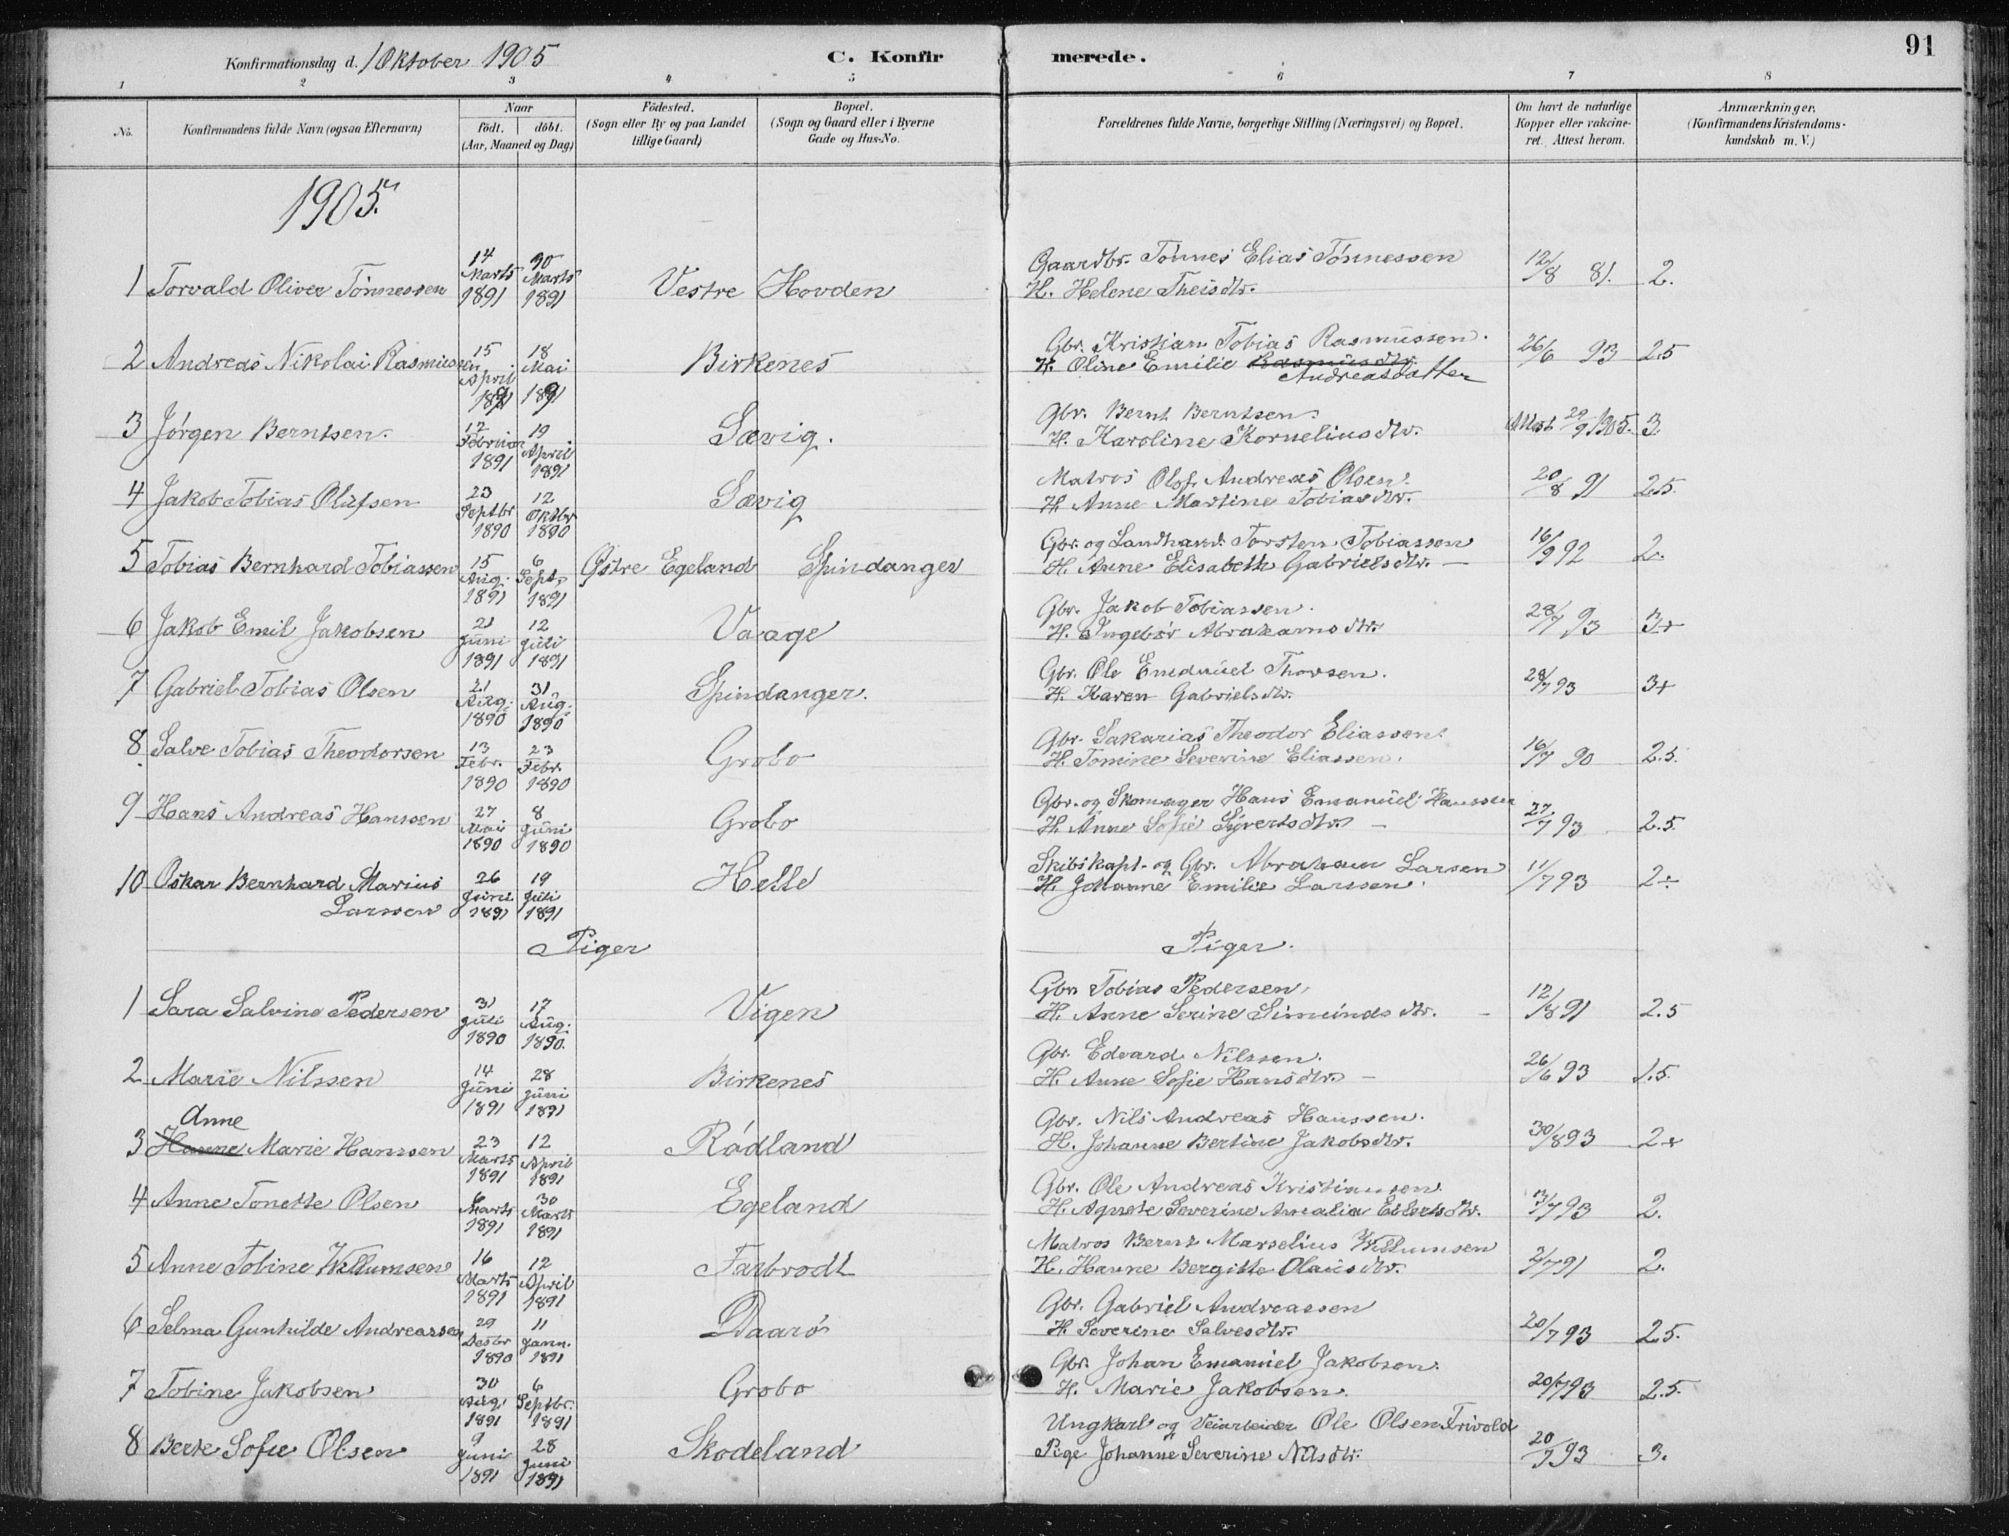 Konfirmationsdag d. 1 Oktober 1905 C. Konfir merede. 91
1 2 3 4 5 6 7 8
No. Konfirmandens fulde Navn (ogsaa Efternavn) Naar födt. döbt. (Aar, Maaned og Dag) Födested. (Sogn eller By og paa Landet tillige Gaard) Bopæl. (Sogn og Gaard eller i Byerne Gade og Hus-No. Forældrenes fulde Navne, borgerlige Stilling (Næringsvei) og Bopæl. Om havt de naturlige Kopper eller vakcineret. Attest herom. Anmærkninger. (Konfirmandens Kristendomskundskab m. V.)
1905.
1 Torvald Oliver Tönnessen 14 Marts 1891 30 Marts 1891 Vestre Hovden Gaardbr. Tönnes Elias Tönnessen
H. Helene Theisdtr. 12/8 81. 2.
2 Andreas Nikolai Rasmussen 15 April 1891 18 Mai 1891 Birkenes Gbr. Kristian Tobias Rasmussen.
H. Oline Emilie Rasmusdtr. Andreasdatter 26/6 93 2.5
3 Jörgen Berntsen. 12 Februar 1891 19 April 1891 Sævig. Gbr. Bernt Berntsen.
H. Karoline Korneliusdtr. Attest 29/9 1905. 3.
4 Jakob Tobias Olufsen 23 Septbr 1890 12 Oktbr 1890 Sævig Matros Olof Andreas Olsen.
H. Anne Martine Tobiasdtr. 20/8 91 2.5.
5 Tobias Bernhard Tobiassen 15 Aug. 1891 6 Sept. 1891 Östre Egeland Spindanger Gbr. og Landhand. Torsten Tobiassen
H. Anne Elisabeth Gabrielsdtr. 16/9 92 2.
6 Jakob Emil Jakobsen 21 Juni 1891 12 Juli 1891 Vaage Gbr. Jakob Tobiassen.
H. Ingebör Abrahamsdtr. 28/7 93 3+
7 Gabriel Tobias Olsen 21 Aug. 1890 31 Aug. 1890 Spindanger. Gbr. Ole Emanuel Thorsen.
H. Karen Gabrielsdtr. 28/7 93 3+
8. Salve Tobias Theodorsen 13 Febr. 1890 23 Febr. 1890 Grobo Gbr. Sakarias Theodor Eliassen.
H. Tomine Severine Eliassen. 16/7 90 2.5.
9 Hans Andreas Hanssen 27 Mai 1890 8 Juni 1890 Grobo Gbr. og Skomager Hans Emanuel Hanssen
H. Anne Sofie Syvertsdtr. 27/7 93 2.5.
10 Oskar Bernhard Marius Larssen 26 Juni 1891 19 Juli 1891 Helle Skibskapt. og Gbr. Abraham Larsen
H. Johanne Emilie Larssen. 11/7 93 2÷
Piger Piger.
1 Sara Salvine Pedersen 31 Juli 1890 17 Aug. 1890. Vigen Gbr. Tobias Pedersen,
H. Anne Serine Simundsdtr. 12/8 91 2.5
2 Marie Nilssen 14 Juni 1891 28 Juni 1891 Birkenes Gbr. Edvard Nilssen.
H. Anne Sofie Hansdtr. 26/6 93 1.5.
Anne
3 Hanne Marie Hanssen 23 Marts 1891 12 April 1891 Rödland Gbr. Nils Andreas Hanssen.
H. Johanne Bertine Jakobsdtr. 30/8 93 2+
4 Anne Tonette Olsen 6 Marts 1891 30 Marts 1891 Egeland Gbr. Ole Andreas Kristiansen
H. Agnete Severine Amalia Eilertsdtr. 13/7 93 2.
5 Anne Tobine Willumsen 16 Marts 1891 12 April 1891 Farbrodt Matros Bernt Marselius Willumsen
H. Hanne Bergitte Olausdtr. 2/7 91 2.
6 Selma Gunhilde Andreassen 29 Desbr 1890 11 Jann. 1891 Daarö Gbr. Gabriel Andreassen
H. Severine Salvesdtr. 20/7 93 2.5.
7 Tobine Jakobsen 30 Aug. 1891 6 Septbr. 1891 Grobo Gbr. Johan Emanuel Jakobsen.
H. Marie Jakobsen. 20/7 93 2.5.
8 Berte Sofie Olsen 9 Juni 1891 28 Juni 1891 Skodeland Ungkarl og Veiarbeider Ole Olsen Frivold
Pige Johanne Severine Nilsdtr. 20/7 93 3.